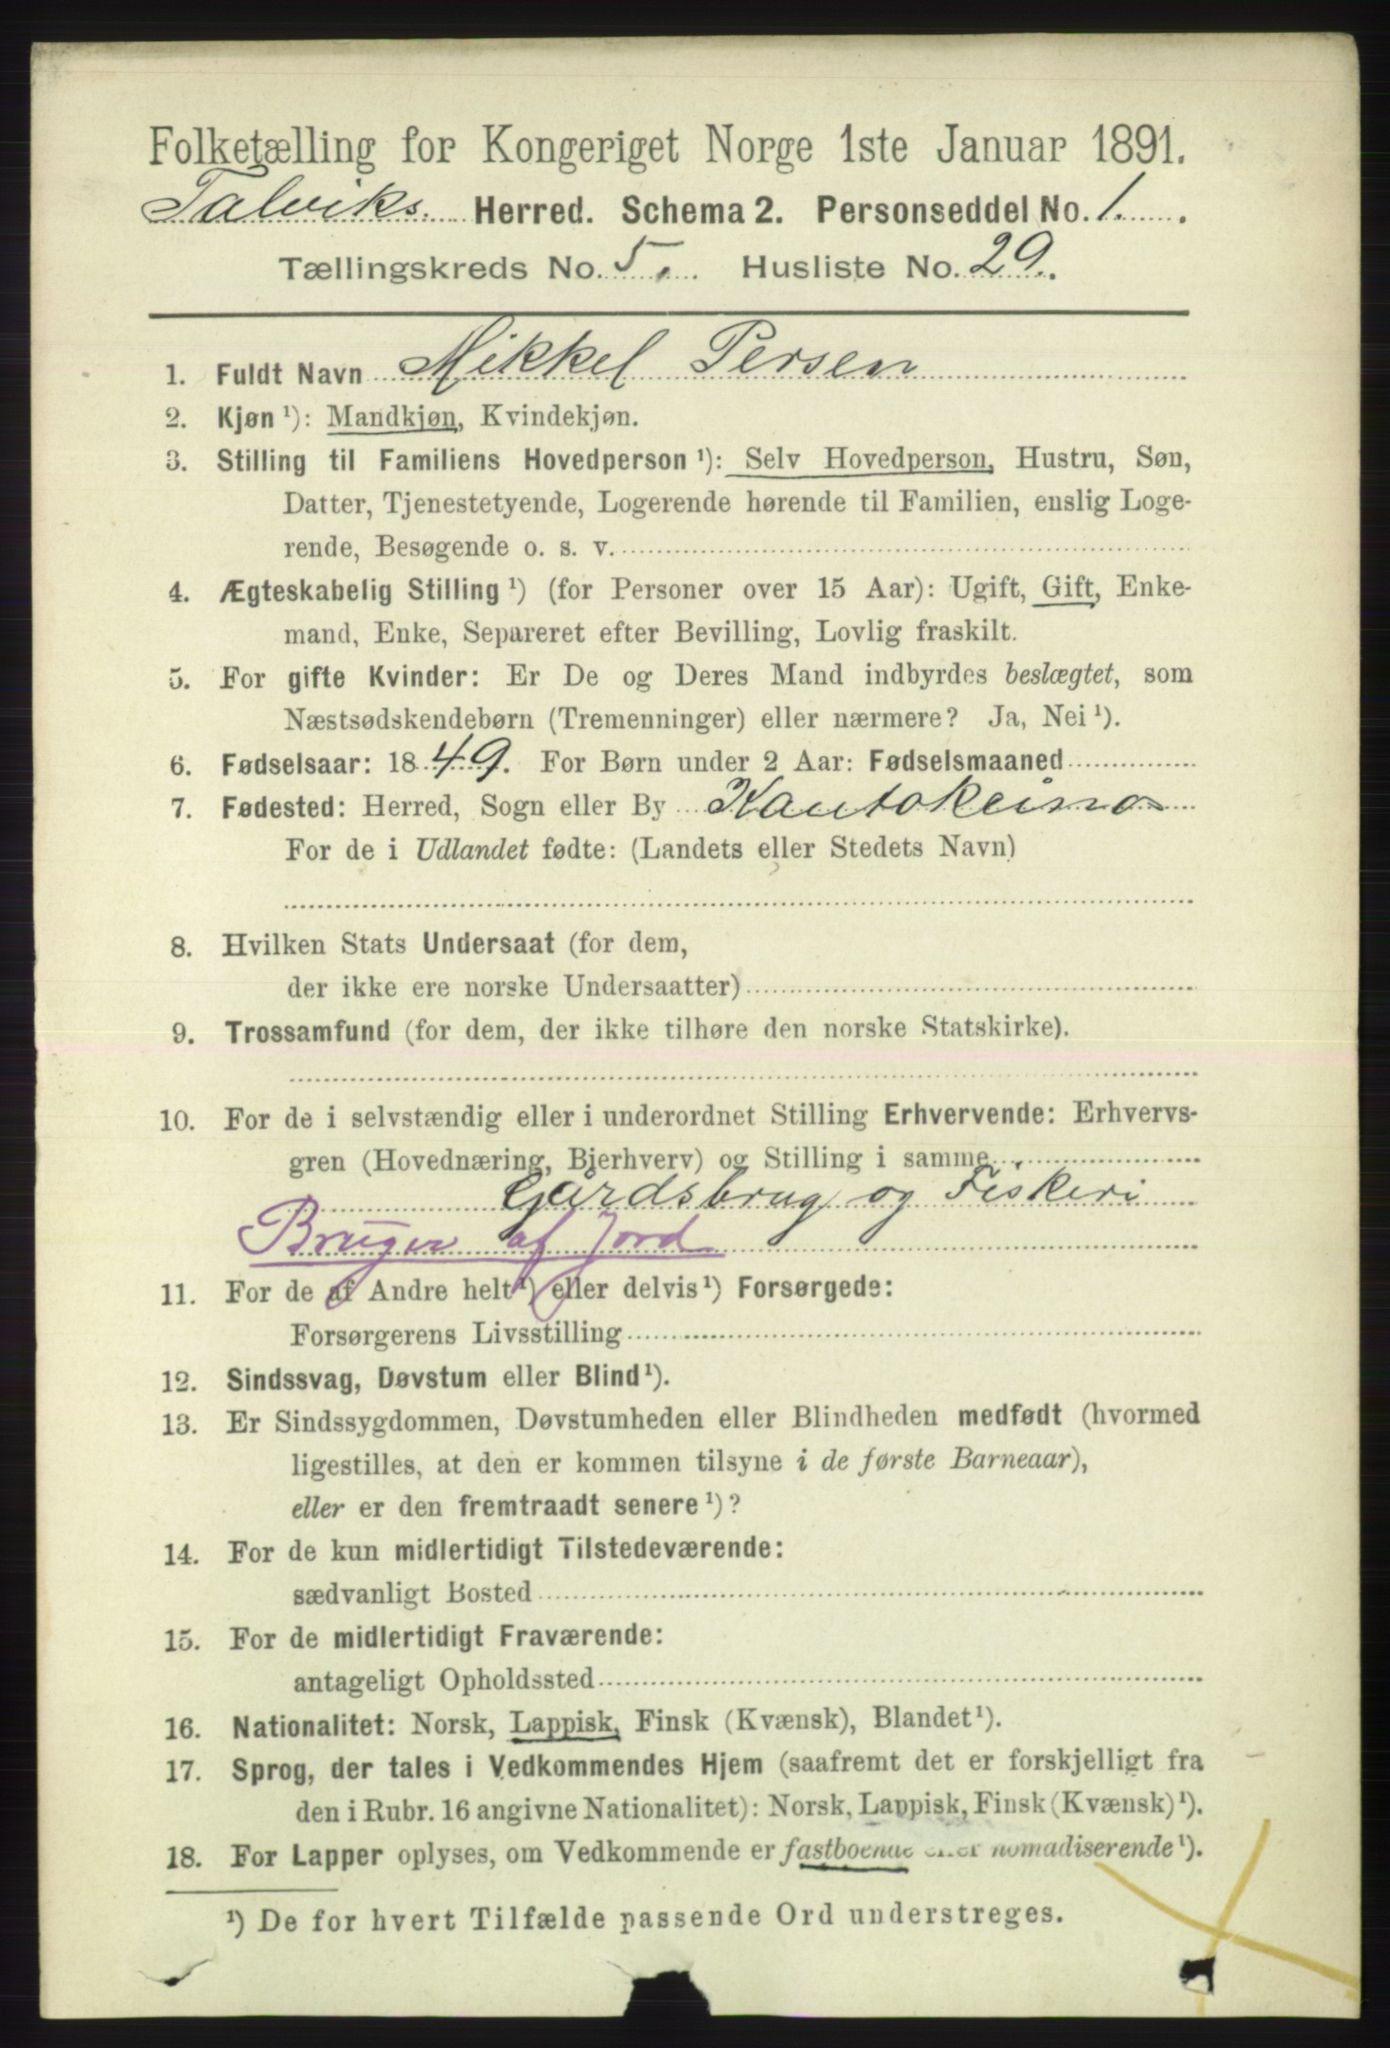 Folketælling for Kongeriget Norge 1ste Januar 1891.
Talviks Herred. Schema 2. Personseddel No. 1.
Tællingskreds No. 5. Husliste No. 29.
1. Fuldt Navn Mikkel Persen
2. Kjøn ¹): Mandkjøn, Kvindekjøn.
3. Stilling til Familiens Hovedperson ¹): Selv Hovedperson, Hustru, Søn,
Datter, Tjenestetyende, Logerende hørende til Familien, enslig Loge-
rende, Besøgende o. s. v.
4. Ægteskabelig Stilling ¹) (for Personer over 15 Aar): Ugift, Gift, Enke-
mand, Enke, Separeret efter Bevilling, Lovlig fraskilt.
5. For gifte Kvinder: Er De og Deres Mand indbyrdes beslægtet, som
Næstsødskendebørn (Tremenninger) eller nærmere? Ja, Nei ¹).
6. Fødselsaar: 1849. For Børn under 2 Aar: Fødselsmaaned
7. Fødested: Herred, Sogn eller By Kautokeino
For de i Udlandet fødte: (Landets eller Stedets Navn)
8. Hvilken Stats Undersaat (for dem,
der ikke ere norske Undersaatter)
9. Trossamfund (for dem, der ikke tilhøre den norske Statskirke).
10. For de i selvstændig eller i underordnet Stilling Erhvervende: Erhvervs-
gren (Hovednæring, Bierhverv) og Stilling i samme
Gårdsbrug og Fiskeri
Bruger af Jord
11. For de af Andre helt ¹) eller delvis ¹) Forsørgede:
Forsørgerens Livsstilling
12. Sindssvag, Døvstum eller Blind ¹).
13. Er Sindssygdommen, Døvstumheden eller Blindheden medfødt (hvormed
ligestilles, at den er kommen tilsyne i de første Barneaar),
eller er den fremtraadt senere ¹)?
14. For de kun midlertidigt Tilstedeværende:
sædvanligt Bosted
15. For de midlertidigt Fraværende:
antageligt Opholdssted
16. Nationalitet: Norsk, Lappisk, Finsk (Kvænsk), Blandet ¹).
17. Sprog, der tales i Vedkommendes Hjem (saafremt det er forskjelligt fra
den i Rubr. 16 angivne Nationalitet): Norsk, Lappisk, Finsk (Kvænsk) ¹).
18. For Lapper oplyses, om Vedkommende er fastboende eller nomadiserende ¹).
¹) De for hvert Tilfælde passende Ord understreges.